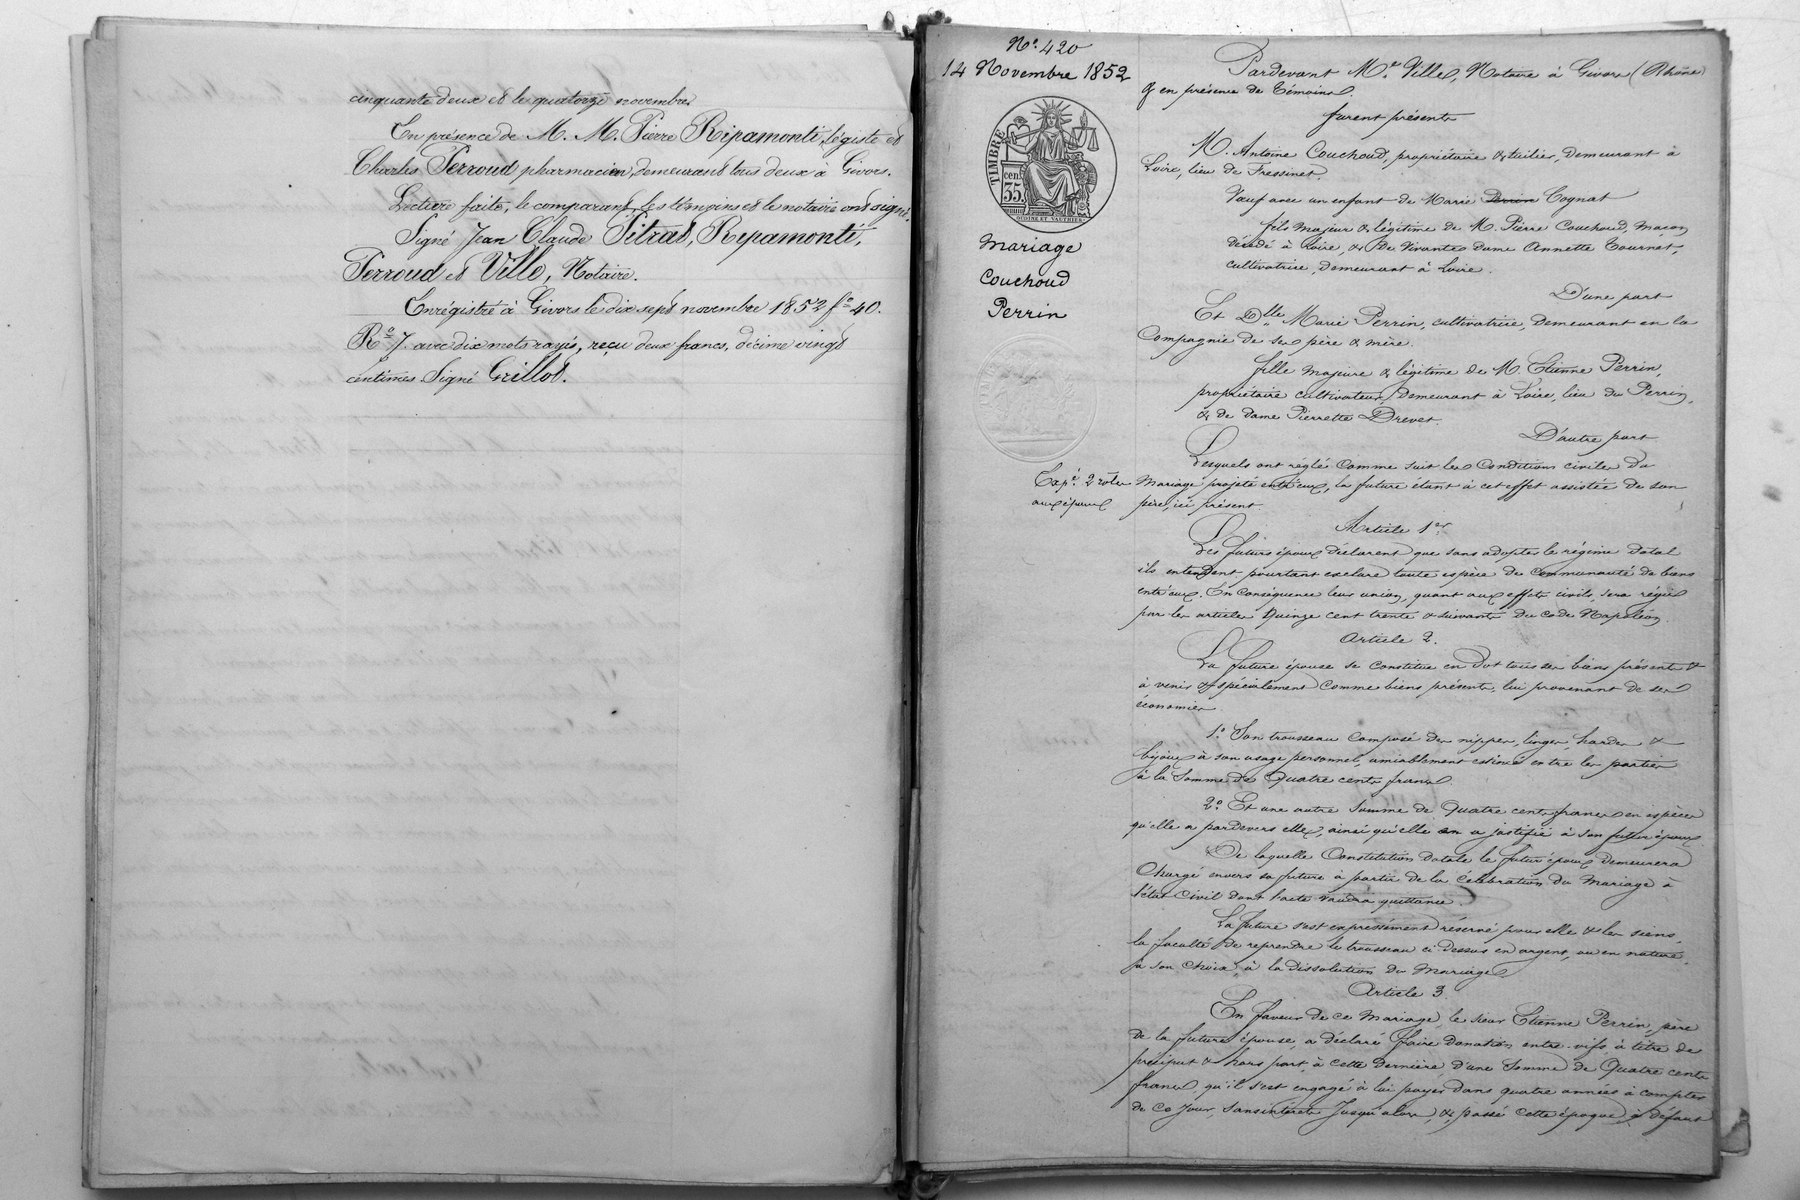 cinquante deux et le quatorze novembre
En présence de M. M. Pierre Ripamonti, légiste et
Charles Perroud pharmacien, demeurant tous deux à Givors.
Lecture faite, le comparant, les témoins et le notaire ont signé.
Signé Jean Claude Pitrat, Repamonti,
Perroud et Ville, Notaire.
Enrégistré à Givors le dix sept novembre 1852 fo 40.
Ro 7. avec dix mots rayés, reçu deux francs, décime vingt
centimes. Signé Grillot.
No. 420
14 Novembre 1852
TIMBRE
35 cen.
Mariage
Couchoud
Perrin
Expé. 2 rôles
aux époux
Pardevant Me. Ville, Notaire à Givors (Rhône)
& en présence de témoins.
furent présents
M. Antoine Couchoud, propriétaire & tuilier, demeurant à
Loire, lieu de Fressinet.
Veuf avec un enfant de Marie Perrin Cognat
fils majeur & légitime de M. Pierre Couchoud, maçon
décédé à Loire, & de vivante Dame Annette Tournet,
cultivatrice, demeurant à Loire.
D'une part
Et Dlle Marie Perrin, cultivatrice, demeurant en la
Compagnie de ses père & mère.
fille majeure & légitime de M. Etienne Perrin,
propriétaire cultivateur, demeurant à Loire, lieu du Perrin,
& de Dame Pierrette Drevet.
D'autre part
Lesquels ont réglé comme suit les Conditions civiles du
Mariage projeté entr'eux, la future étant à cet effet assistée de son
père, ici présent.
Article 1er
Les futurs époux déclarent que sans adopter le régime dotal
ils entendent pourtant exclure toute espèce de communauté de biens
entr'eux. En conséquence leur union, quant aux effets civils, sera régie
par les articles Quinze cent trente & suivants du code Napoléon.
Article 2.
La future épouse se constitue en dot tous ses biens présents &
à venir & spécialement comme biens présents, lui provenant de ses
économies.
1o. Son trousseau composé des nippes, linges, hardes &
bijoux à son usage personnel, amiablement estimé entre les parties
à la somme de Quatre cents francs.
2o. Et une autre somme de Quatre cents francs en espèces
qu'elle a pardevers elle, ainsi qu'elle en a justifié à son futur époux
De laquelle Constitution dotale le futur époux demeurera
Chargé envers sa future à partir de la célébration du Mariage à
l'état Civil dont l'acte vaudra quittance.
La future s'est expressément réservé pour elle & les siens,
la faculté de reprendre le trousseau ci-dessus en argent, ou en nature,
à son choix, à la dissolution du Mariage.
Article 3
En faveur de ce Mariage, le sieur Etienne Perrin, père
de la future épouse, a déclaré faire Donation entre-vifs à titre de
préciput & hors part, à cette dernière, d'une somme de Quatre cents
francs qu'il s'est engagé à lui payer dans quatre années à compter
de ce jour, sans intérêts jusqu'alors, &, passé cette époque, à défaut